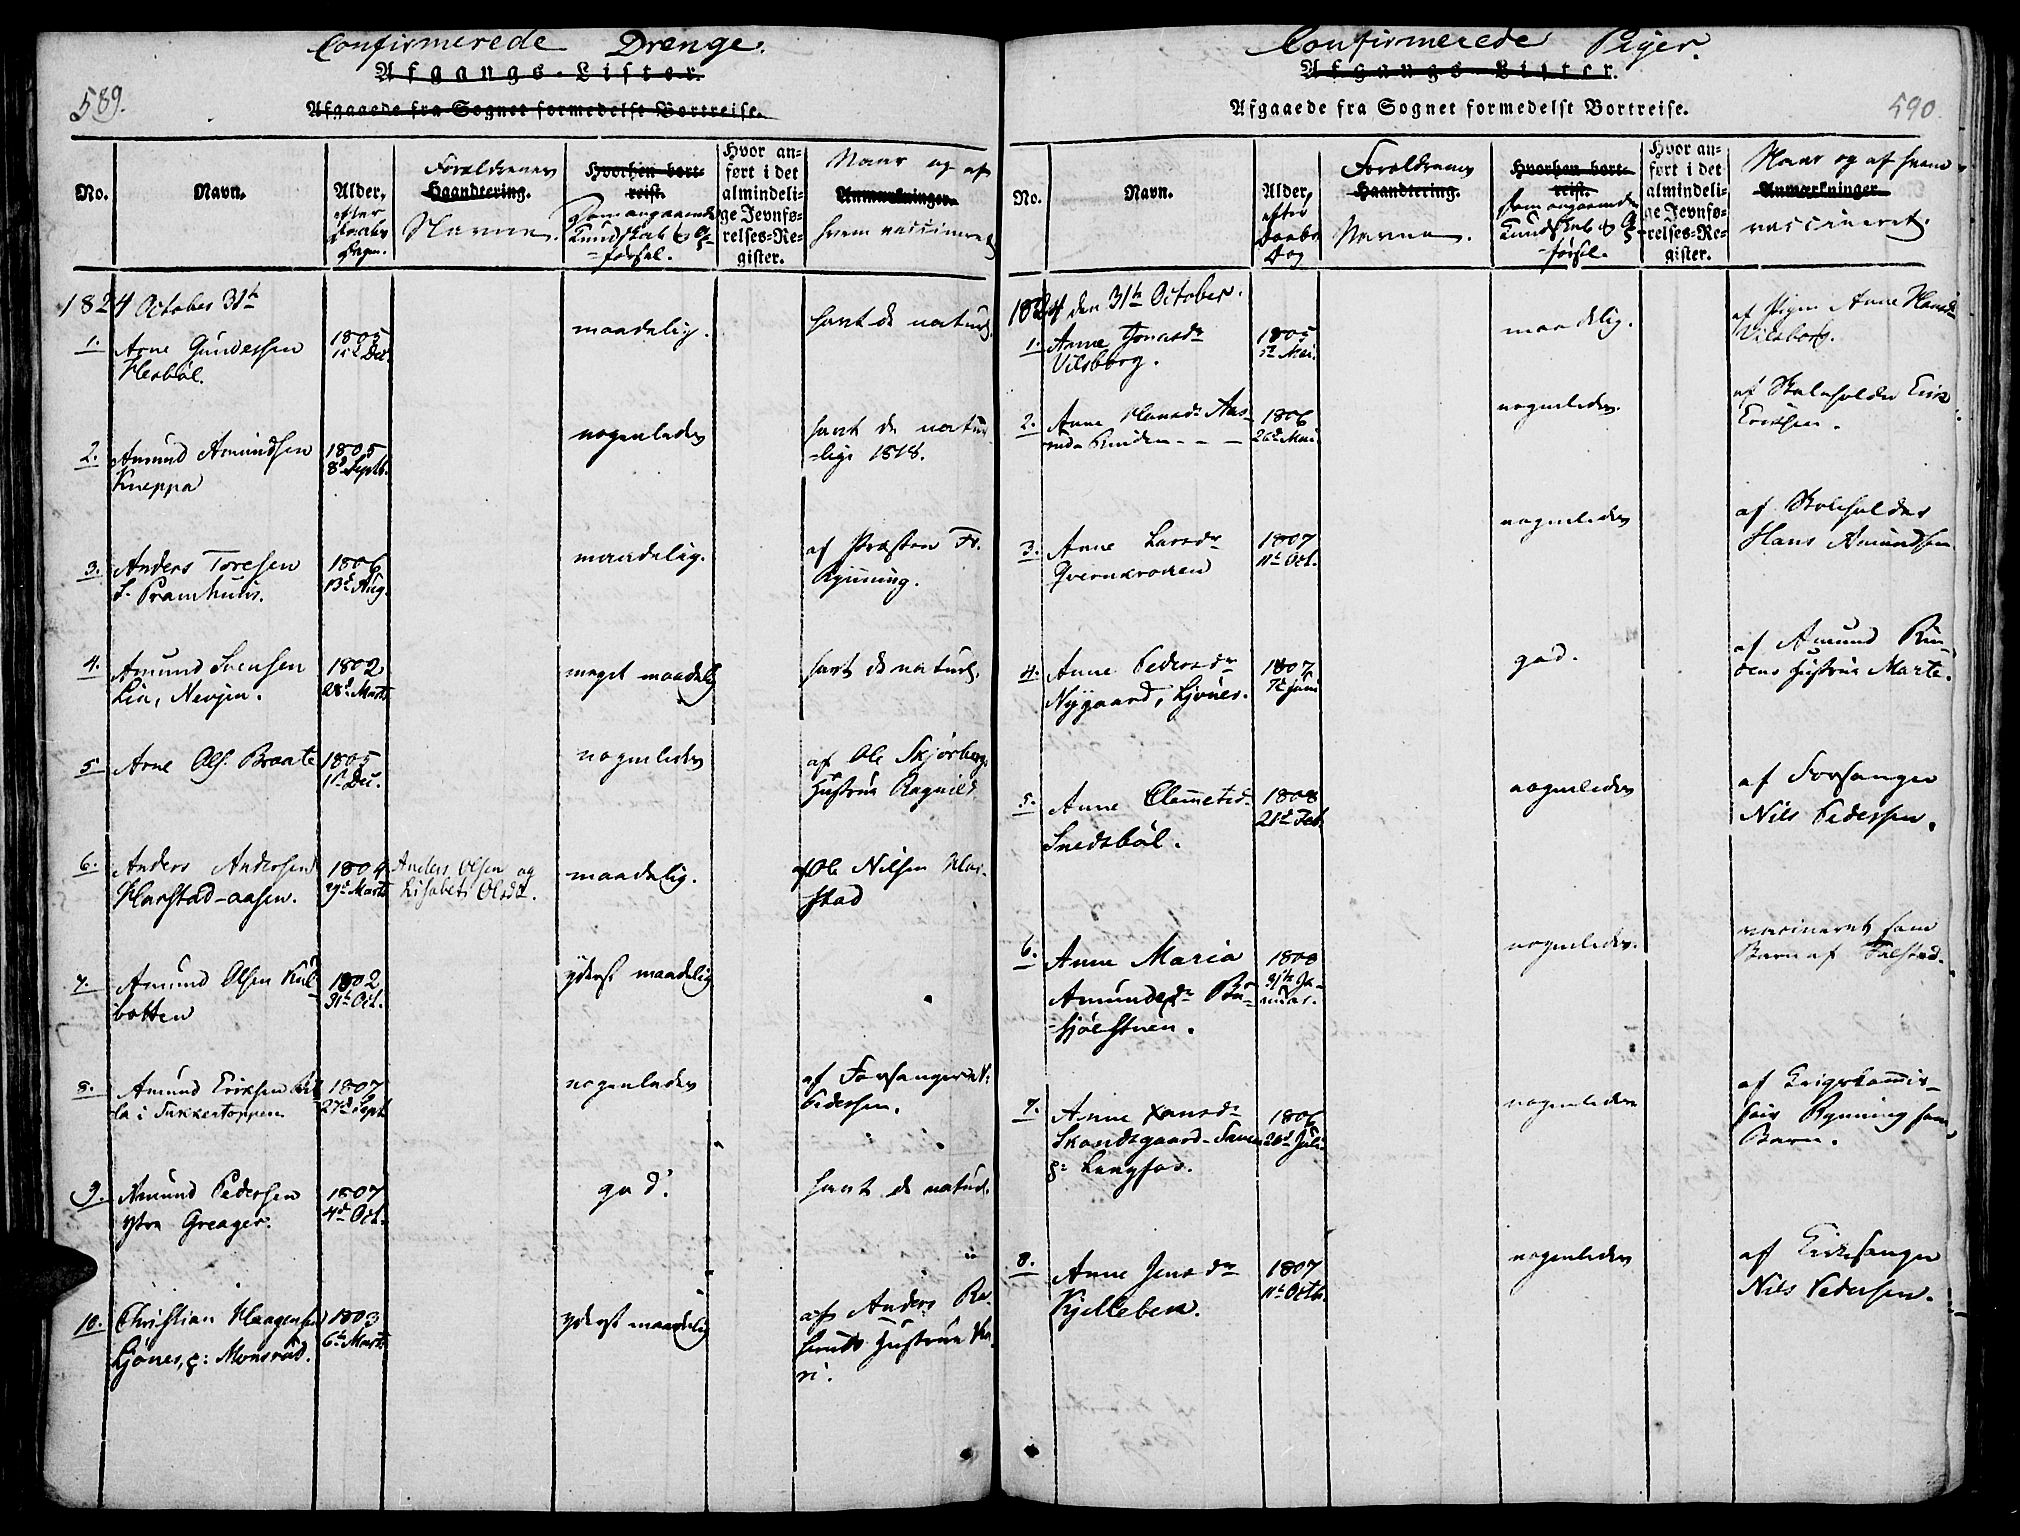 Confirmerede Drenge.
Afgangs-Lister.
589.
Afgaaede fra Sognet formedelst Bortreise.
No.
Navn.
Alder,
efter
Daabs
Dagen.
Forældrenes
Haandtering.
Navne.
Hvorhen bort-
reist.
Dom angaaende
Kundskab og
Opførsel.
Hvor an-
ført i det
almindeli-
ge Jevnfø-
relses-Re-
gister.
Naar og af
Anmærkninger.
hvem vaccineret
1824 October 31te
1. Arne Gundersen
Herbøl.
1805
Dec.
maadelig.
havt de naturl.
2. Amund Amundsen
Kneppa
1805
8de Septb.
nogenledes
havt de natur-
lige 1818.
3. Anders Toresen
Pramhuus.
1806
13de Aug.
maadelig.
af Præsten Fr.
Rynning.
4. Amund Svensen
Lia, Nevjen.
1802
28de Marts
meget maadelig
havt de naturl.
5. Arne Ols. Braate
1805
1te Dec.
nogenledes
af Ole Skjørberg
Hustrue Ragnild
6. Anders Andersen
Harstad-aasen.
1804
Marts
Anders Olsen og
Lisabet Olsdt.
maadelig.
af Ole Nilsen Har-
stad
7. Amund Olsen Kul-
botten
1802
31te Oct.
yderst maadelig
8. Amund Eriksen
i Sukkertoppen
1807
27de Sept.
nogenledes
af Forsanger N:
Pedersen.
9. Amund Pedersen
ytra Greager.
1807
4de Oct.
god.
havt de naturl.
10. Christian Haagensen
Ljønes, p: Monsrud.
1803
6te Marts
yderst maadelig
af Anders
Hustrue Ka-
ri.
Confirmerede Piger.
Afgangs-Lister.
Afgaaede fra Sognet formedelst Bortreise.
590.
No.
Navn.
Alder,
efter
Daabs
Dag
Forældrenes
Haandtering.
Navne.
Hvorhen bort-
reist.
Dom angaaende
Kundskab og
Opførsel.
Hvor an-
ført i det
almindeli-
ge Jevnfø-
relses-Re-
gister.
Naar og af hvem
Anmærkninger
vaccineret.
1824 den 31te October.
1. Anne Jonasdr
Vilsberg.
1805
Mai.
maadelig.
af Pigen Anne Hansdr
Vilsberg.
2. Anne Hansdr Aas-
1806
26de Mai.
nogenledes.
af Skoleholder Erik
Eriksen.
3. Anne Larsdr
Qvernkroken
1807
11te Oct.
nogenledes
af Skoleholder
Hans Amundsen
4. Anne Pedersdr
Nygaard, Ljønes.
1807
7de Juni
god.
af Amund Run-
dens Hustrue Marte.
5. Anne Clemetsd.
Snedsbøl.
1808
21de Feb.
nogenledes
af Forsanger
Nils Pedersen.
6. Anne Maria
Amundsdr
1808
31te Ja-
nuar.
nogenledes.
vaccineret som
Barn af Falstad.
7. Anne Hansdr
Skandsgaard
p: Langfos.
1806
20de Juli
nogenledes
af Krigscommis-
sair Rynning som
Barn.
8. Anne Jensdr
Kjelleben.
1807
11te Octb.
nogenledes
af Kirkesanger
Nils Pedersen.